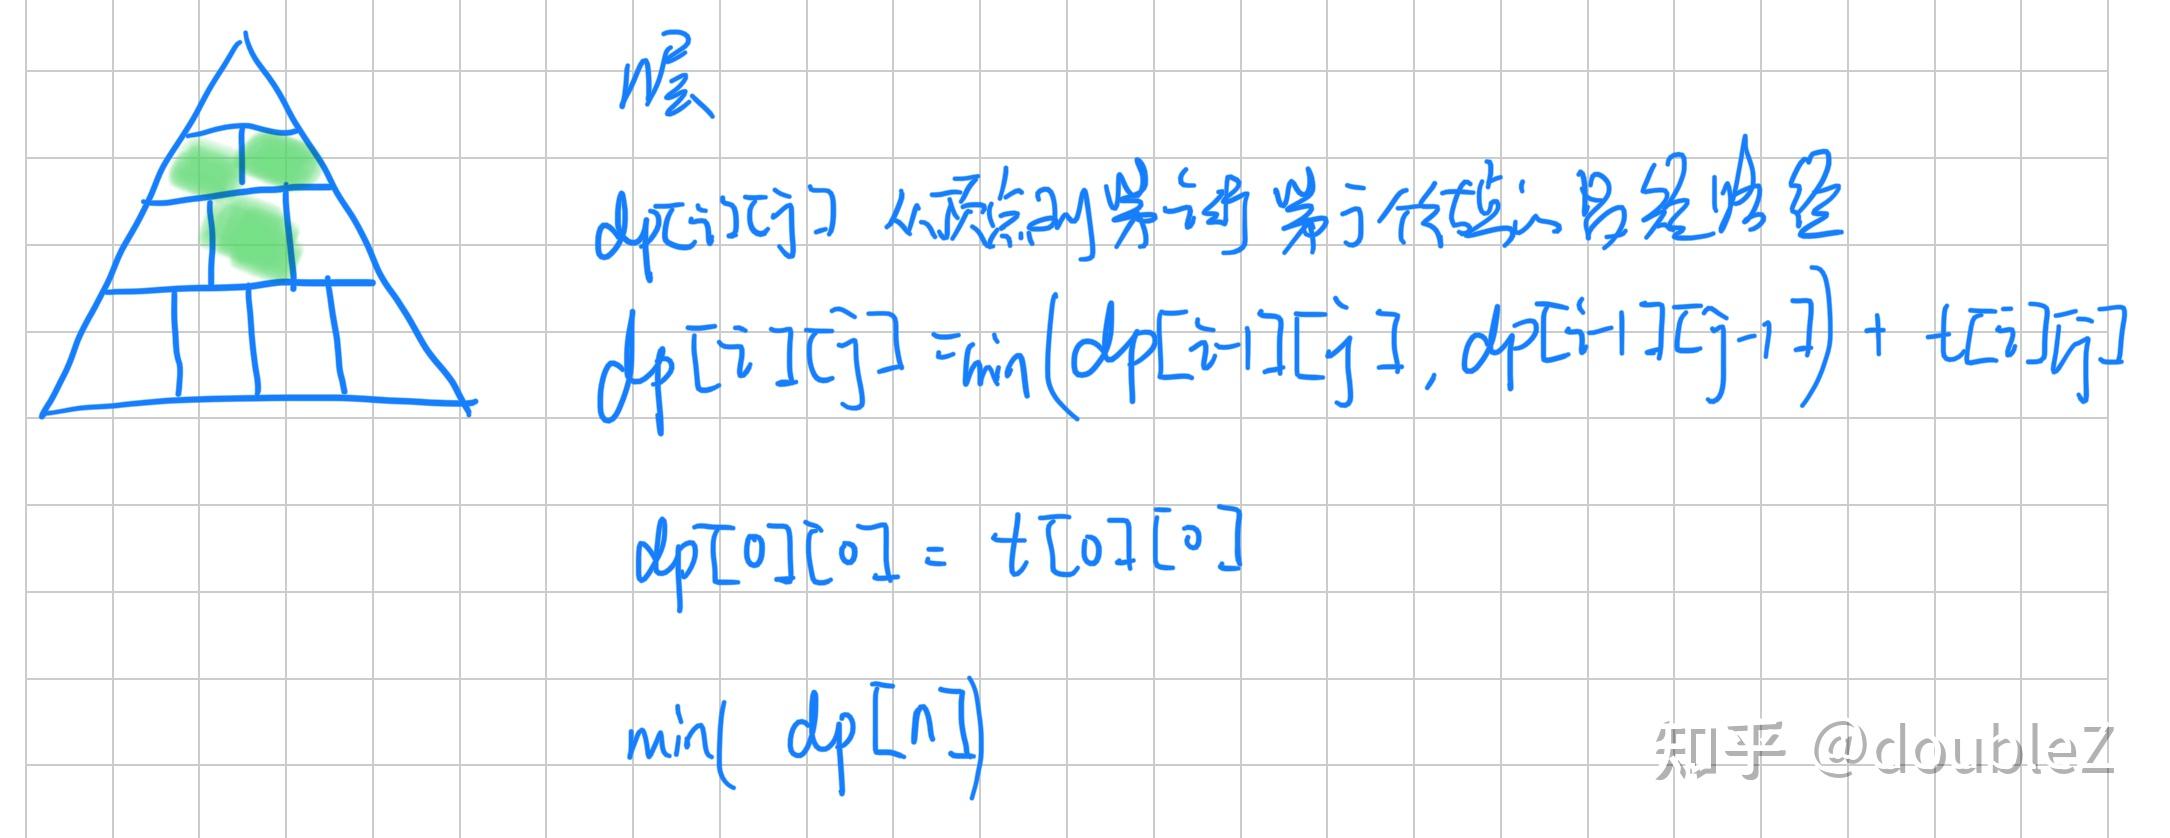 n层
dp[i][j] 从顶点到第i行第j个位置的最短路径
dp[i][j] = min(dp[i-1][j], dp[i-1][j-1]) + t[i][j]
dp[0][0] = t[0][0]
min( dp[n])
知乎 @doubleZ